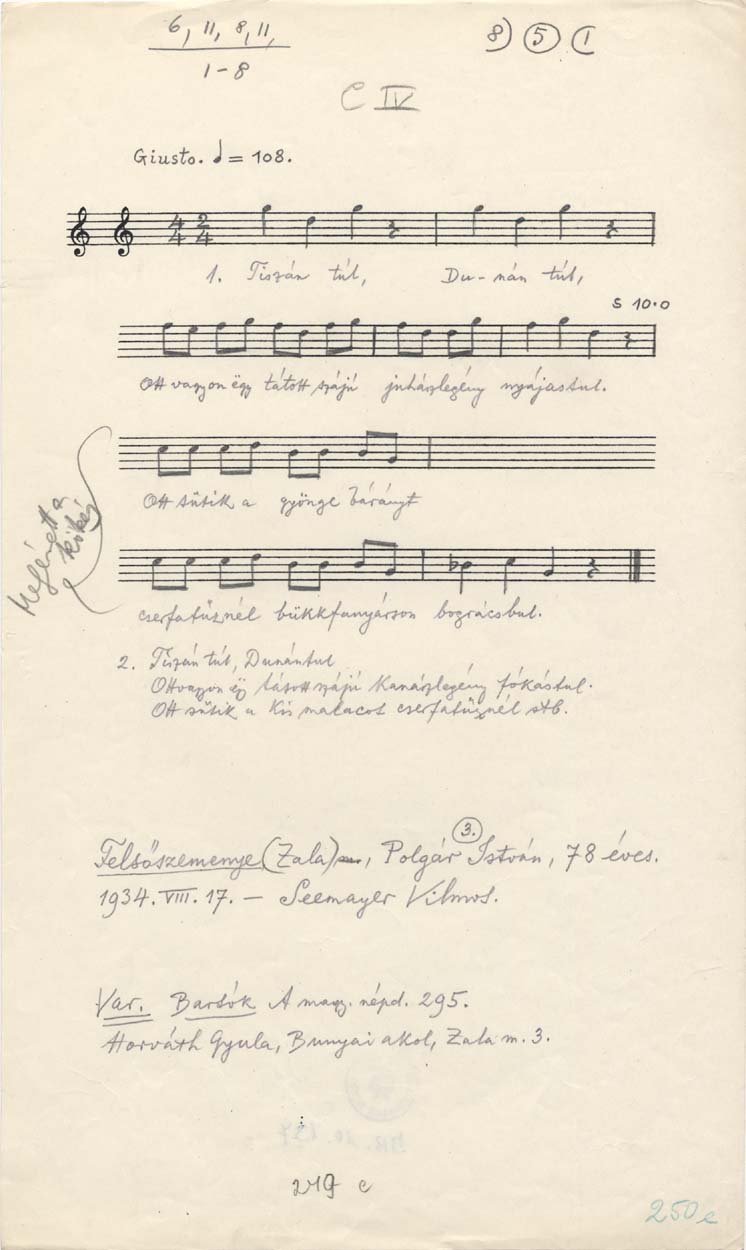 6, 11, 8, 11,
1-8
8) 5 (1
C IV
Giusto. ♩ = 108.
4/4 2/4
1. Tiszán túl, Du-nán túl,
S 10.0
Ott vagyon ëgy tátott szájú juhászlegény nyájastul.
Ott sütik a gyönge bárányt
cserfatűznél bükkfanyárson bográcsbul.
2. Tiszán túl, Dunántul
Ott vagyon ëgy tátott szájú Kanászlegény fókástul.
Ott sütik a kis malacot cserfatűznél stb.
3.
Felsőszemenye (Zala), Polgár István, 78 éves.
1934. VIII. 17. – Seemayer Vilmos.
Var. Bartók A magy. népd. 295.
Horváth Gyula, Bunyai akol, Zala m. 3.
219 c
250 e